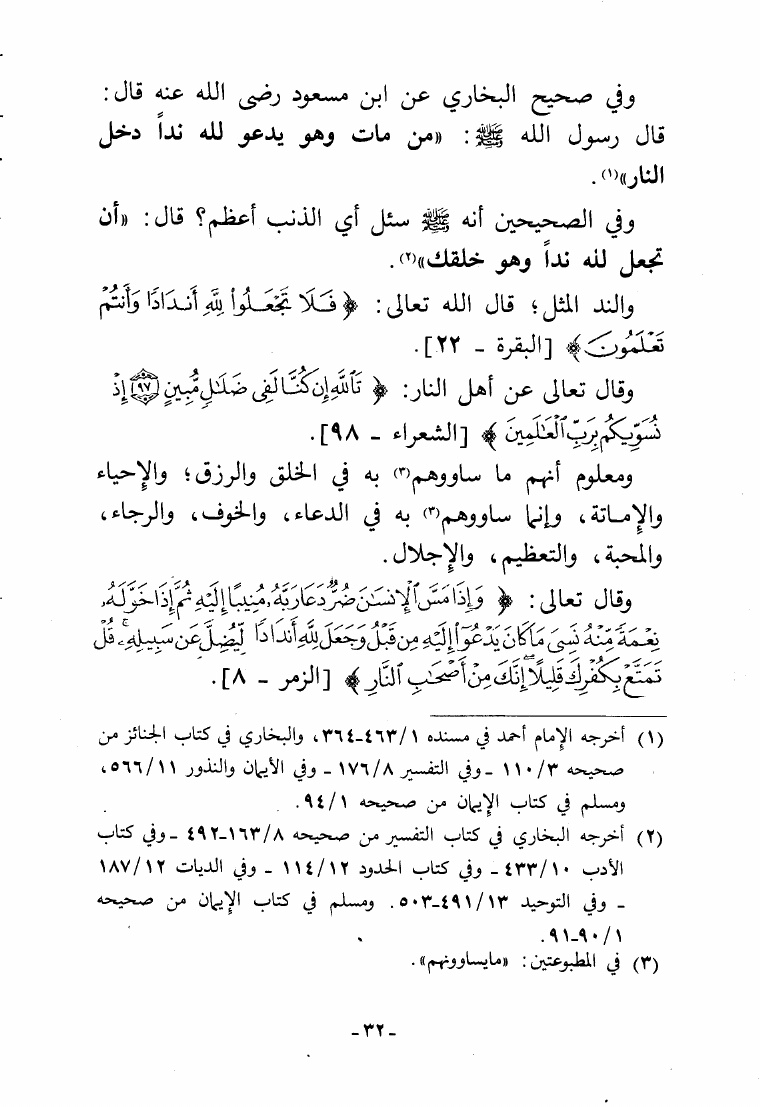 وفي صحيح البخاري عن ابن مسعود رضى الله عنه قال:
قال رسول الله ﷺ: «من مات وهو يدعو لله نداً دخل
النار»(١).
وفي الصحيحين أنه ﷺ سئل أي الذنب أعظم؟ قال: «أن
تجعل لله نداً وهو خلقك»(٢).
والند المثل؛ قال الله تعالى: ﴿ فَلَا تَجْعَلُوا۟ لِلَّهِ أَندَادًا وَأَنتُمْ
تَعْلَمُونَ ﴾ [البقرة - ٢٢].
وقال تعالى عن أهل النار: ﴿ تَٱللَّهِ إِن كُنَّا لَفِى ضَلَٰلٍ مُّبِينٍ ٩٧ إِذْ
نُسَوِّيكُم بِرَبِّ ٱلْعَٰلَمِينَ ﴾ [الشعراء - ٩٨].
ومعلوم أنهم ما ساووهم(٣) به في الخلق والرزق؛ والإحياء
والإماتة، وإنما ساووهم(٣) به في الدعاء، والخوف، والرجاء،
والمحبة، والتعظيم، والإجلال.
وقال تعالى: ﴿ وَإِذَا مَسَّ ٱلْإِنسَٰنَ ضُرٌّ دَعَا رَبَّهُۥ مُنِيبًا إِلَيْهِ ثُمَّ إِذَا خَوَّلَهُۥ
نِعْمَةً مِّنْهُ نَسِىَ مَا كَانَ يَدْعُوٓا۟ إِلَيْهِ مِن قَبْلُ وَجَعَلَ لِلَّهِ أَندَادًا لِّيُضِلَّ عَن سَبِيلِهِۦ ۚ قُلْ
تَمَتَّعْ بِكُفْرِكَ قَلِيلًا ۖ إِنَّكَ مِنْ أَصْحَٰبِ ٱلنَّارِ ﴾ [الزمر - ٨].
(١) أخرجه الإمام أحمد في مسنده ٤٦٣/١-٣٦٤، والبخاري في كتاب الجنائز من
صحيحه ١١٠/٣ - وفي التفسير ١٧٦/٨ - وفي الأيمان والنذور ٥٦٦/١١،
ومسلم في كتاب الإيمان من صحيحه ٩٤/١.
(٢) أخرجه البخاري في كتاب التفسير من صحيحه ١٦٣/٨-٤٩٢ - وفي كتاب
الأدب ٤٣٣/١٠ - وفي كتاب الحدود ١١٤/١٢ - وفي الديات ١٨٧/١٢
- وفي التوحيد ٤٩١/١٣-٥٠٣. ومسلم في كتاب الإيمان من صحيحه
٩٠/١-٩١.
(٣) في المطبوعتين: «مايساوونهم».
-٣٢-